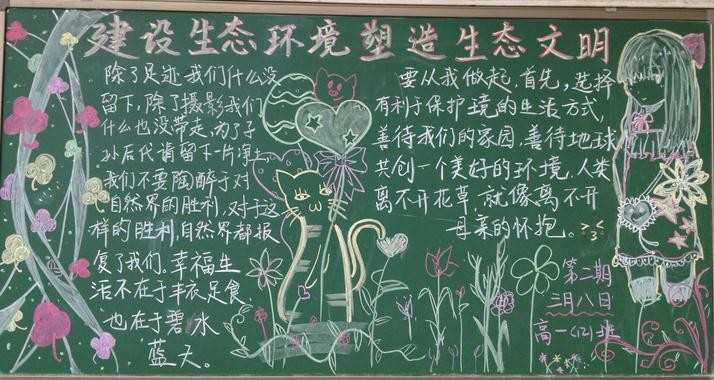 建设生态环境塑造生态文明
除了足迹我们什么没
留下,除了摄影我们
什么也没带走,为了子
孙后代请留下一片净土
我们不要陶醉于对
自然界的胜利,对于这
样的胜利,自然界都报
复了我们。幸福生
活不在于丰衣足食,
也在于碧水
蓝天。
要从我做起,首先,选择
有利于保护环境的生活方式,
善待我们的家园,善待地球
共创一个美好的环境,人类
离不开花草,就像离不开
母亲的怀抱。
第二期
三月八日
高一(12)班